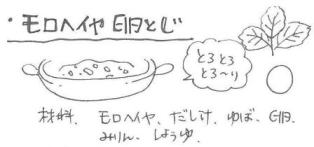 ・モロヘイヤ 卵とじ
とろとろ
とろ〜り
材料、モロヘイヤ、だし汁、ゆば、卵、
みりん、しょうゆ、